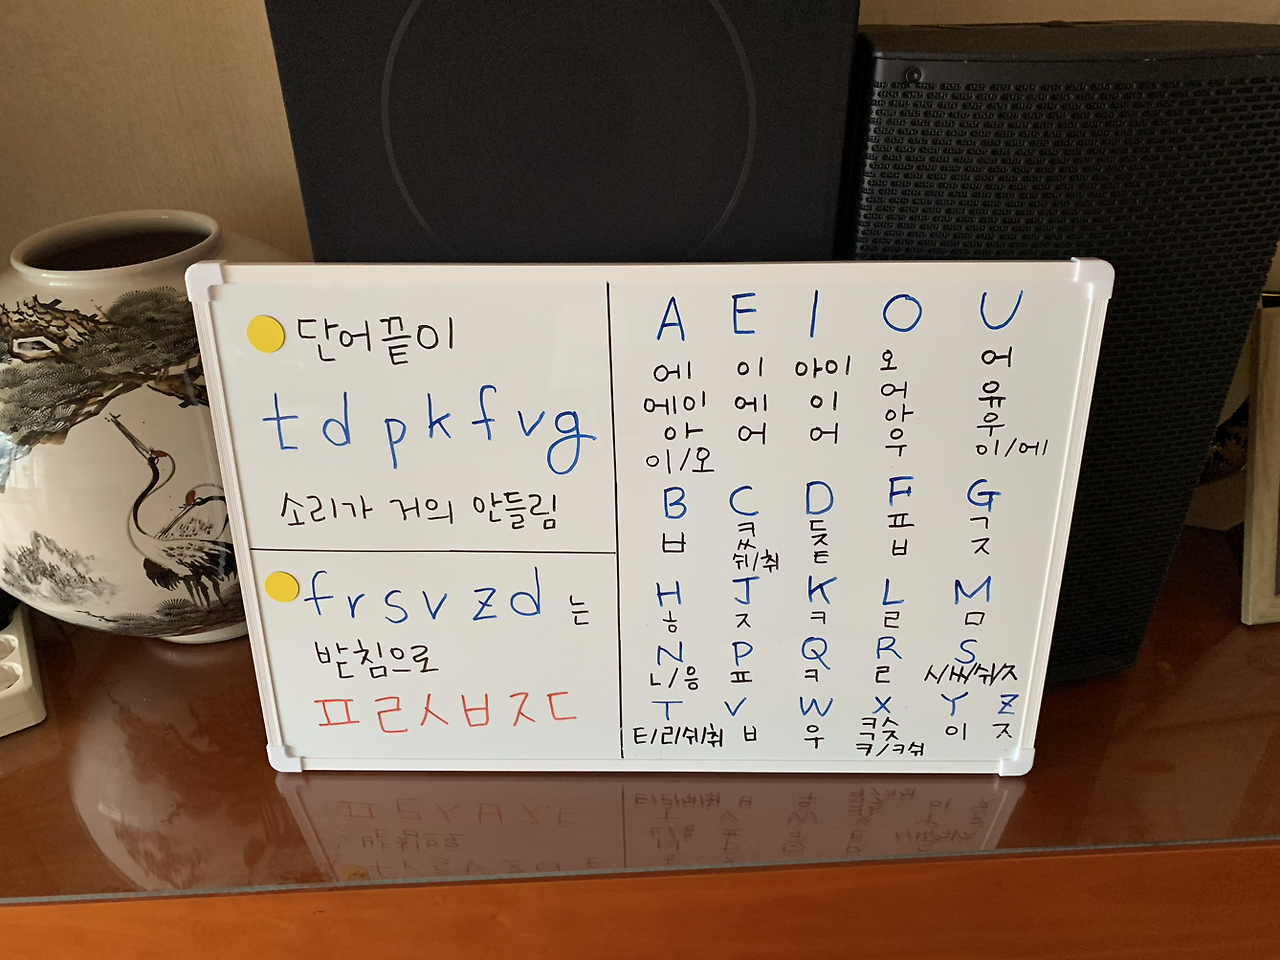 단어끝이
t d p k f v g
소리가 거의 안들림
f r s v z d 는
받침으로
ㅍ ㄹ ㅅ ㅂ ㅈ ㄷ
A E I O U
에 이 아이 오 어
에이 에 이 어 유
아 어 어 아 우
이/오 우 이/에
B C D F G
ㅂ ㅋ ㄷ ㅍ ㄱ
ㅆ ㅈ ㅂ ㅈ
쉬/취 ㅌ
H J K L M
ㅎ ㅈ ㅋ ㄹ ㅁ
N P Q R S
ㄴ/응 ㅍ ㅋ ㄹ ㅅ/ㅆ/쉬/ㅈ
T V W X Y Z
ㅌ/ㄹ/쉬/취 ㅂ 우 ㅋㅅ 이 ㅈ
ㅋ/ㅋ쉬